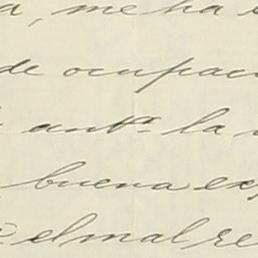 a, me ha
de ocupaci
antª. la
buena ex
el mal re